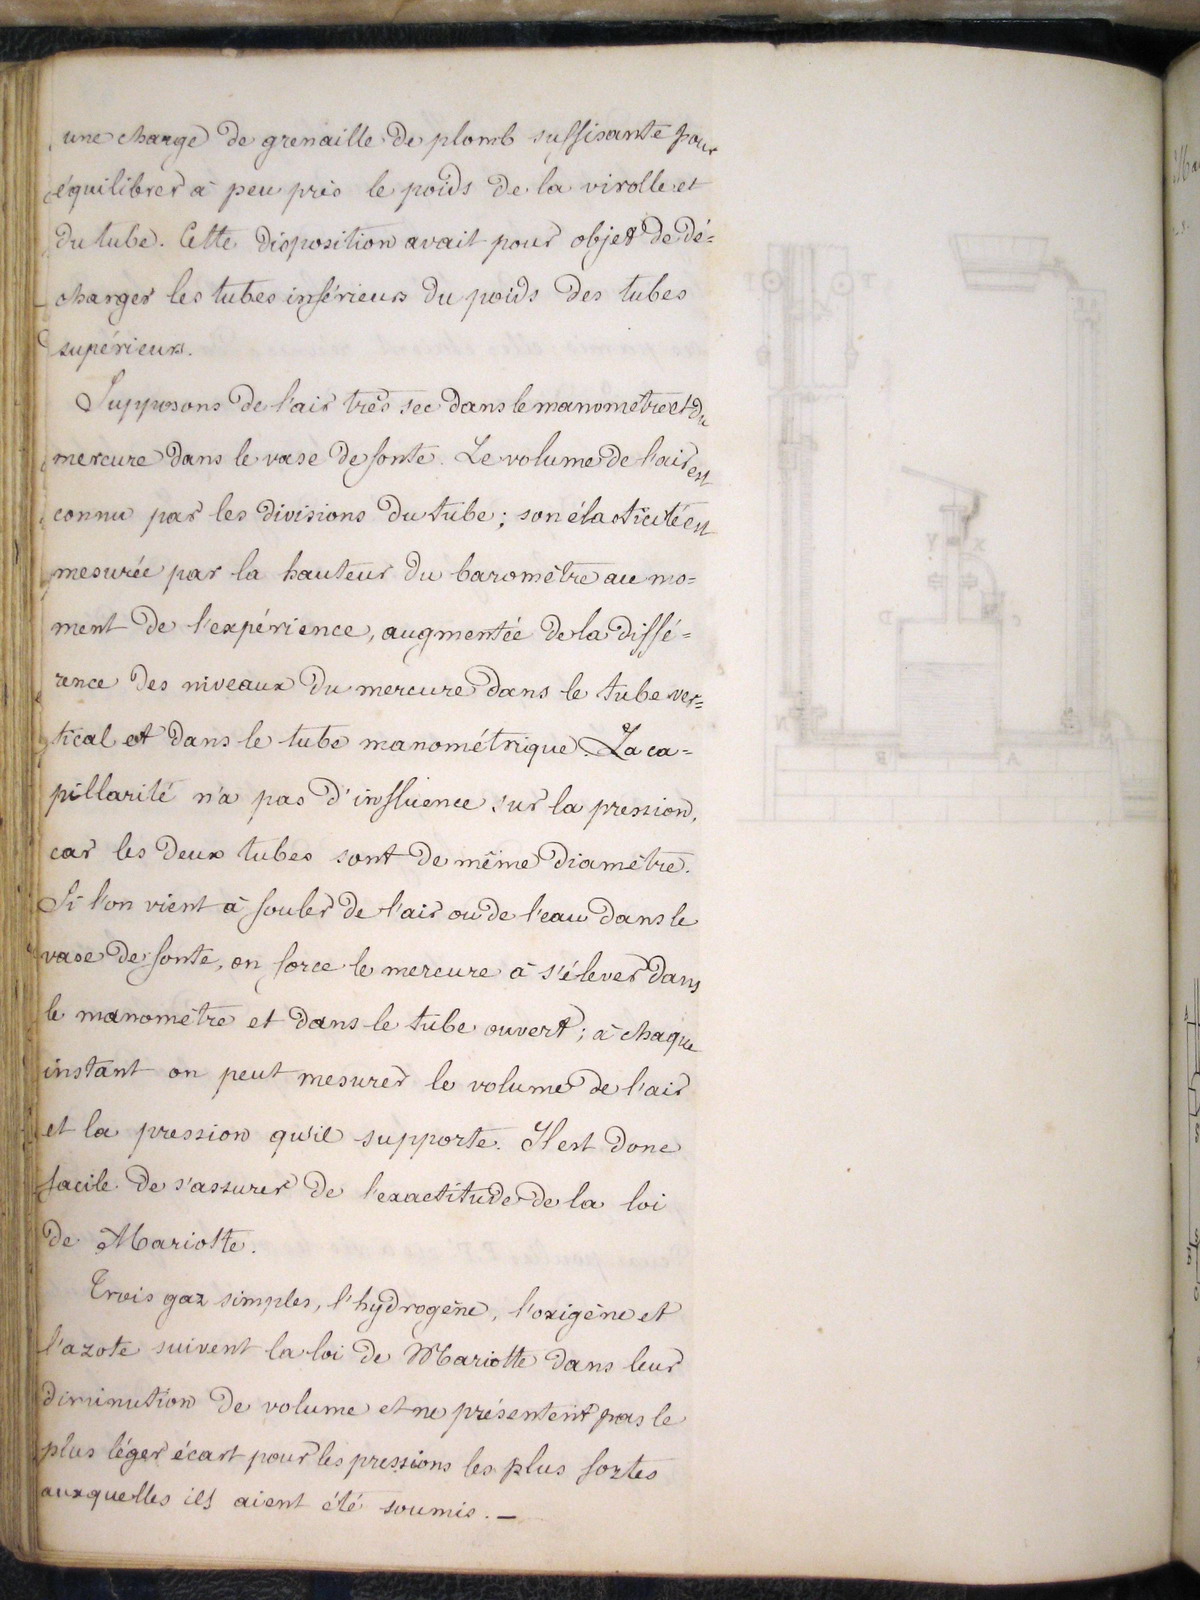 une charge de grenaille de plomb suffisante pour
équilibrer à peu près le poids de la virolle et
du tube. Cette disposition avait pour objet de dé=
charger les tubes inférieurs du poids des tubes
supérieurs.
Supposons de l'air très sec dans le manomètre et du
mercure dans le vase de fonte. Le volume de l'air est
connu par les divisions du tube ; son élasticité est
mesurée par la hauteur du baromètre au mo=
ment de l'expérience, augmentée de la diffé=
rence des niveaux du mercure dans le tube ver=
tical et dans le tube manométrique. La ca=
pillarité n'a pas d'influence sur la pression,
car les deux tubes sont de même diamètre.
Si l'on vient à fouler de l'air ou de l'eau dans le
vase de fonte, on force le mercure à s'élever dans
le manomètre et dans le tube ouvert ; à chaque
instant on peut mesurer le volume de l'air
et la pression qu'il supporte. Il est donc
facile de s'assurer de l'exactitude de la loi
de Mariotte.
Trois gaz simples, l'hydrogène, l'oxigène et
l'azote suivent la loi de Mariotte dans leur
diminution de volume et ne présentent pas le
plus léger écart pour les pressions les plus fortes
auxquelles ils aient été soumis. —